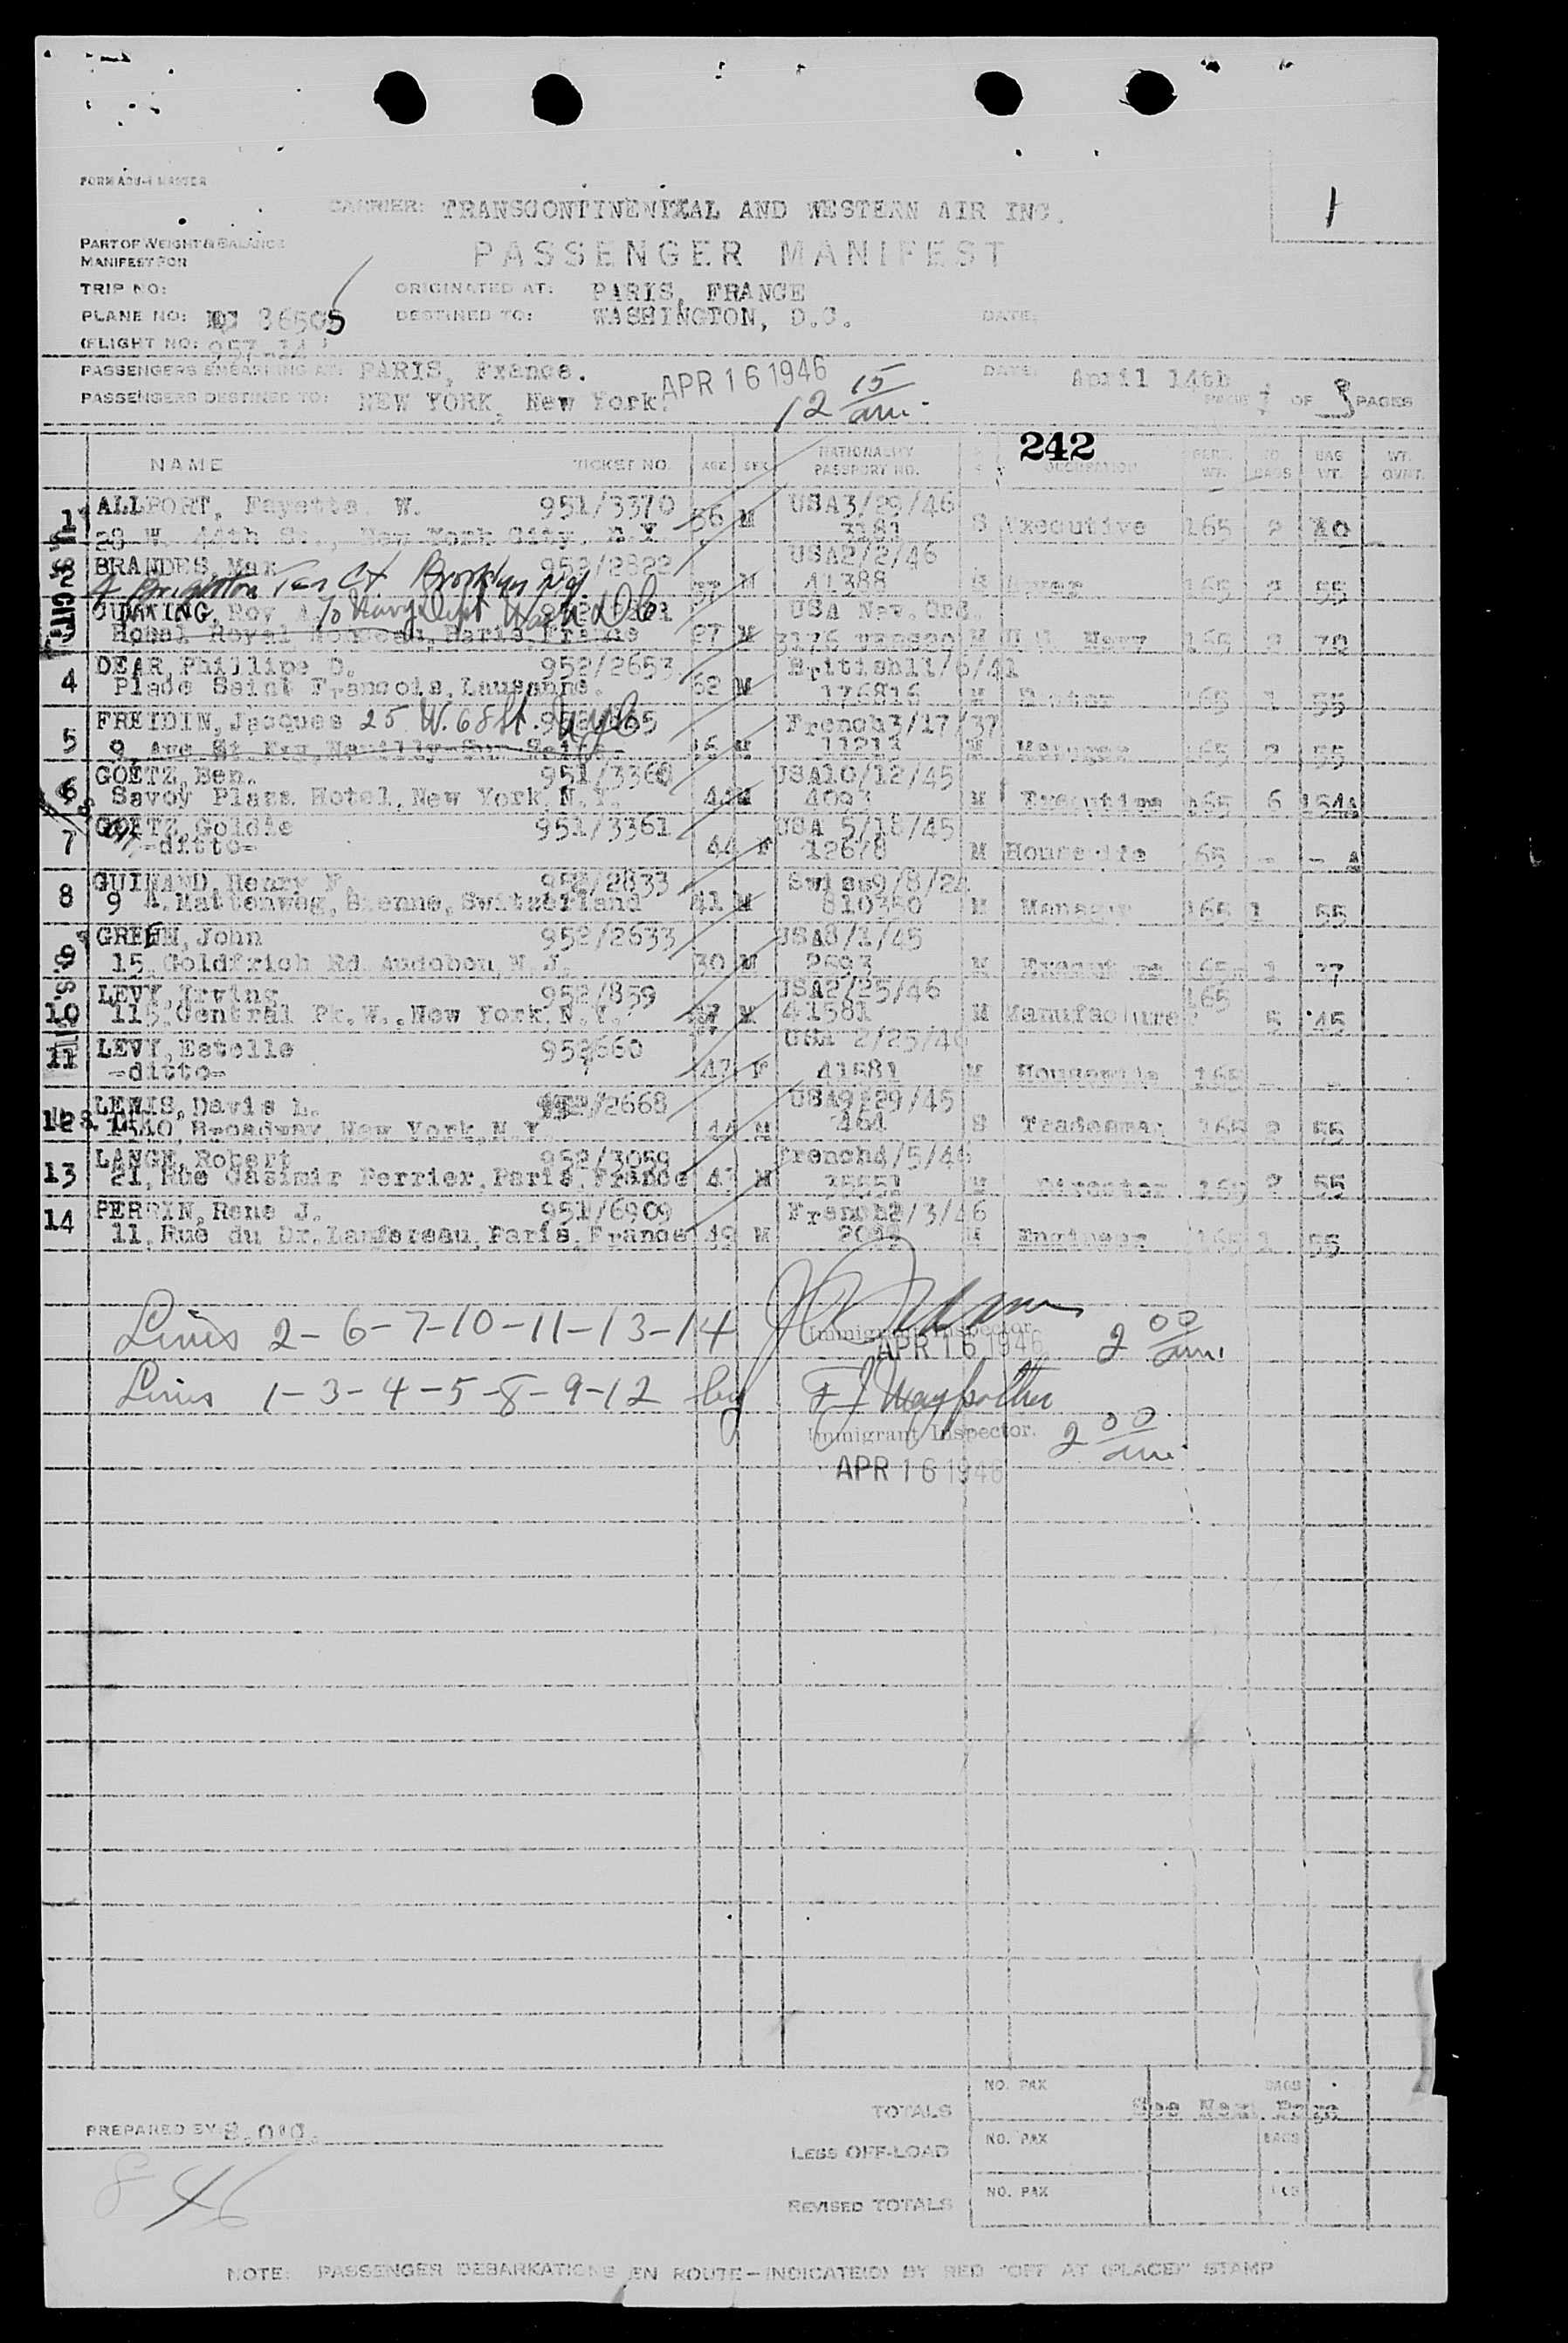 FORM
1
CARRIER: TRANSCONTINENTZAL AND WESTERN AIR INC.
PART OF WEIGHT & BALANCE
MANIFEST FOR
PASSENGER MANIFEST
TRIP NO:
ORIGINATED AT: PARIS, FRANCE
PLANE NO: 86505
DESTINED TO: WASHINGTON, D.C.
DATE:
FLIGHT NO: 957
PASSENGERS EMBARKING AT: PARIS, France.
APR 16 1946
DATE: April 14th
PASSENGERS DESTINED TO: NEW YORK, New York.
12 15 am.
PAGE OF 3 PAGES
242
NAME TICKET NO. AGE SEX NATIONALITY PASSPORT NO. OCCUPATION PERS. WT. NO. BAGS BAG WT. WT. OVNT.
1 ALLPORT, Fayette. W. 951/3370 56 M USA3/29/46
28 W. 44th St., New York City. N.Y. 3181 S Executive 165 2 40
BRANDES, Max 952/2822 USA2/2/46
4 Brighton Ter Ct. Brooklyn NY 37 M 41388 165 2 55
Roy c/o Navy Dept Wash DC USA Nav.Ord.
Hotel Royal Monceau, Paris, France 27 M 3176 M U.S. Navy 165 2 70
4 DEAR, Phillipe D. 952/2653 British11/6/41
Place Saint Francois, Lausanne. 52 M 176816 M 165 1 55
5 FREIDIN, Jacques 25 W. 68 St. NYC French3/17/37
9, Ave St. Neuilly-Sur-Seine. M 11213 M Manager 165 2 55
6 GOETZ, Ben. 951/3360 USA10/12/45
Savoy Plaza Hotel, New York, N.Y. 44 M 4093 M Executive 165 6 154A
7 GOETZ, Goldie 951/3361 USA 5/18/45
-ditto- 44 F 12678 M Housewife 165 - - A
8 GUINAND, Henry F. 952/2833 Swiss9/8/24
9 A. Mattenweg, Bienne, Switzerland 41 M 810350 M Manager 165 1 55
9 GREEN, John 952/2633 USA8/1/45
15, Goldfrich Rd. Audobon, N.J. 30 M 2593 M 165 1 37
10 LEVY, Irving 952/859 USA2/25/46
115, Central Pk. W., New York, N.Y. M 41581 M Manufacturer 165 5 45
11 LEVY, Estelle USA 2/25/46
-ditto- 47 F 41581 M Housewife 165 - -
12 LEWIS, Davis L. 2668 USA9/29/45
Broadway, New York, N.Y. 44 M 464 S Tradesman 165 2 55
13 LANGE, Robert 952/3059 French4/5/46
21, Rue Casimir Perrier, Paris, France 43 M 35551 M Director 165 2 55
14 PERRIN, Rene J. 951/6909 French2/3/46
11, Rue du Dr. Lancereau, Paris, France 49 M M Engineer 165 1 55
Lines 2-6-7-10-11-13-14
Immigrant Inspector.
APR 16 1946
2 00 am.
Lines 1-3-4-5-8-9-12 by
Immigrant Inspector.
2 00 am.
APR 16 1946
NO. PAX BAGS
TOTALS See Next Page
PREPARED BY:
NO. PAX BAGS
LESS OFF-LOAD
NO. PAX
REVISED TOTALS
46
NOTE: PASSENGER DEBARKATIONS EN ROUTE—INDICATE(D) BY RED "OFF AT (PLACE)" STAMP